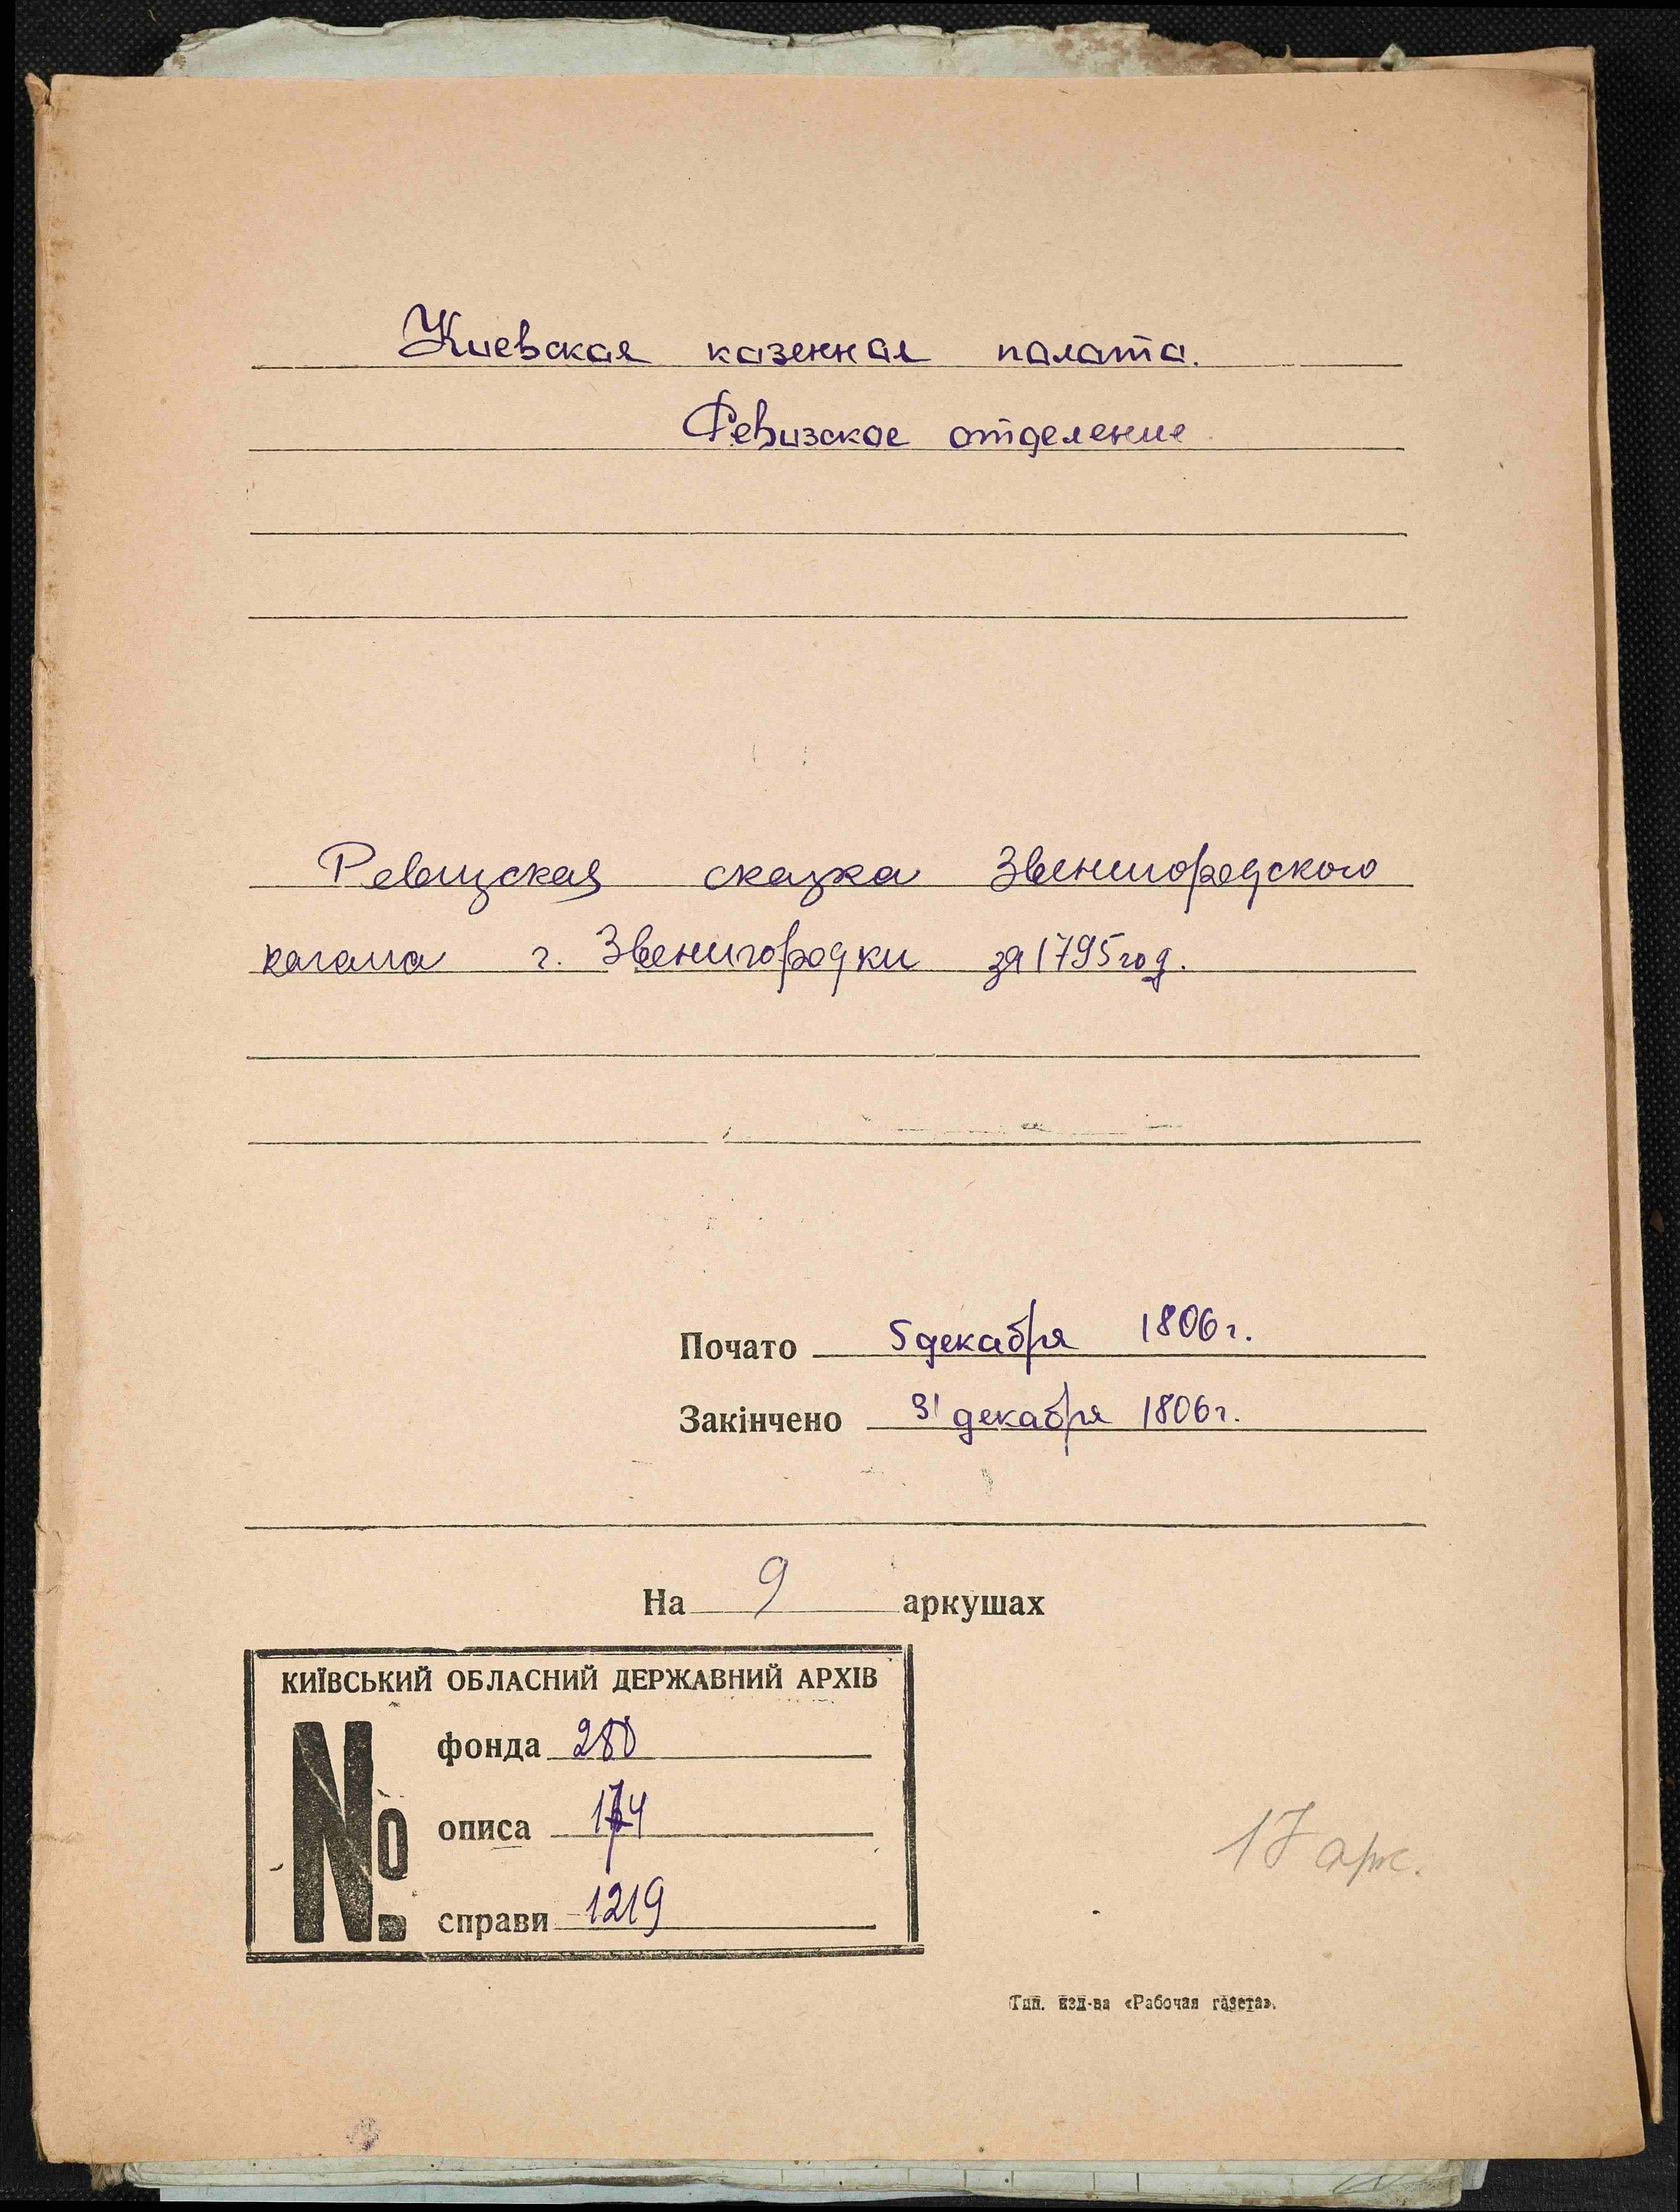 Киевская казенная палата.
Ревизское отделение
Ревизская сказка Звенигородского
кагала г. Звенигородки за 1795 год.
Почато 5 декабря 1806 г.
Закінчено 31 декабря 1806 г.
На 9 аркушах
КИЇВСЬКИЙ ОБЛАСНИЙ ДЕРЖАВНИЙ АРХІВ
№
фонда 280
описа 174
справи 1219
17 арк.
Тип. изд-ва «Рабочая газета».